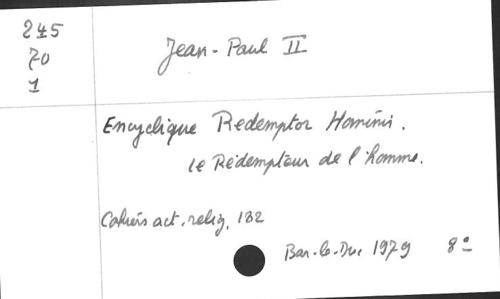 245
70
1
Jean-Paul II
Encyclique Redemptor Hominis.
Le Rédempteur de l'homme.
Cahiers act. relig. 182
Bar-le-Duc 1979 8°